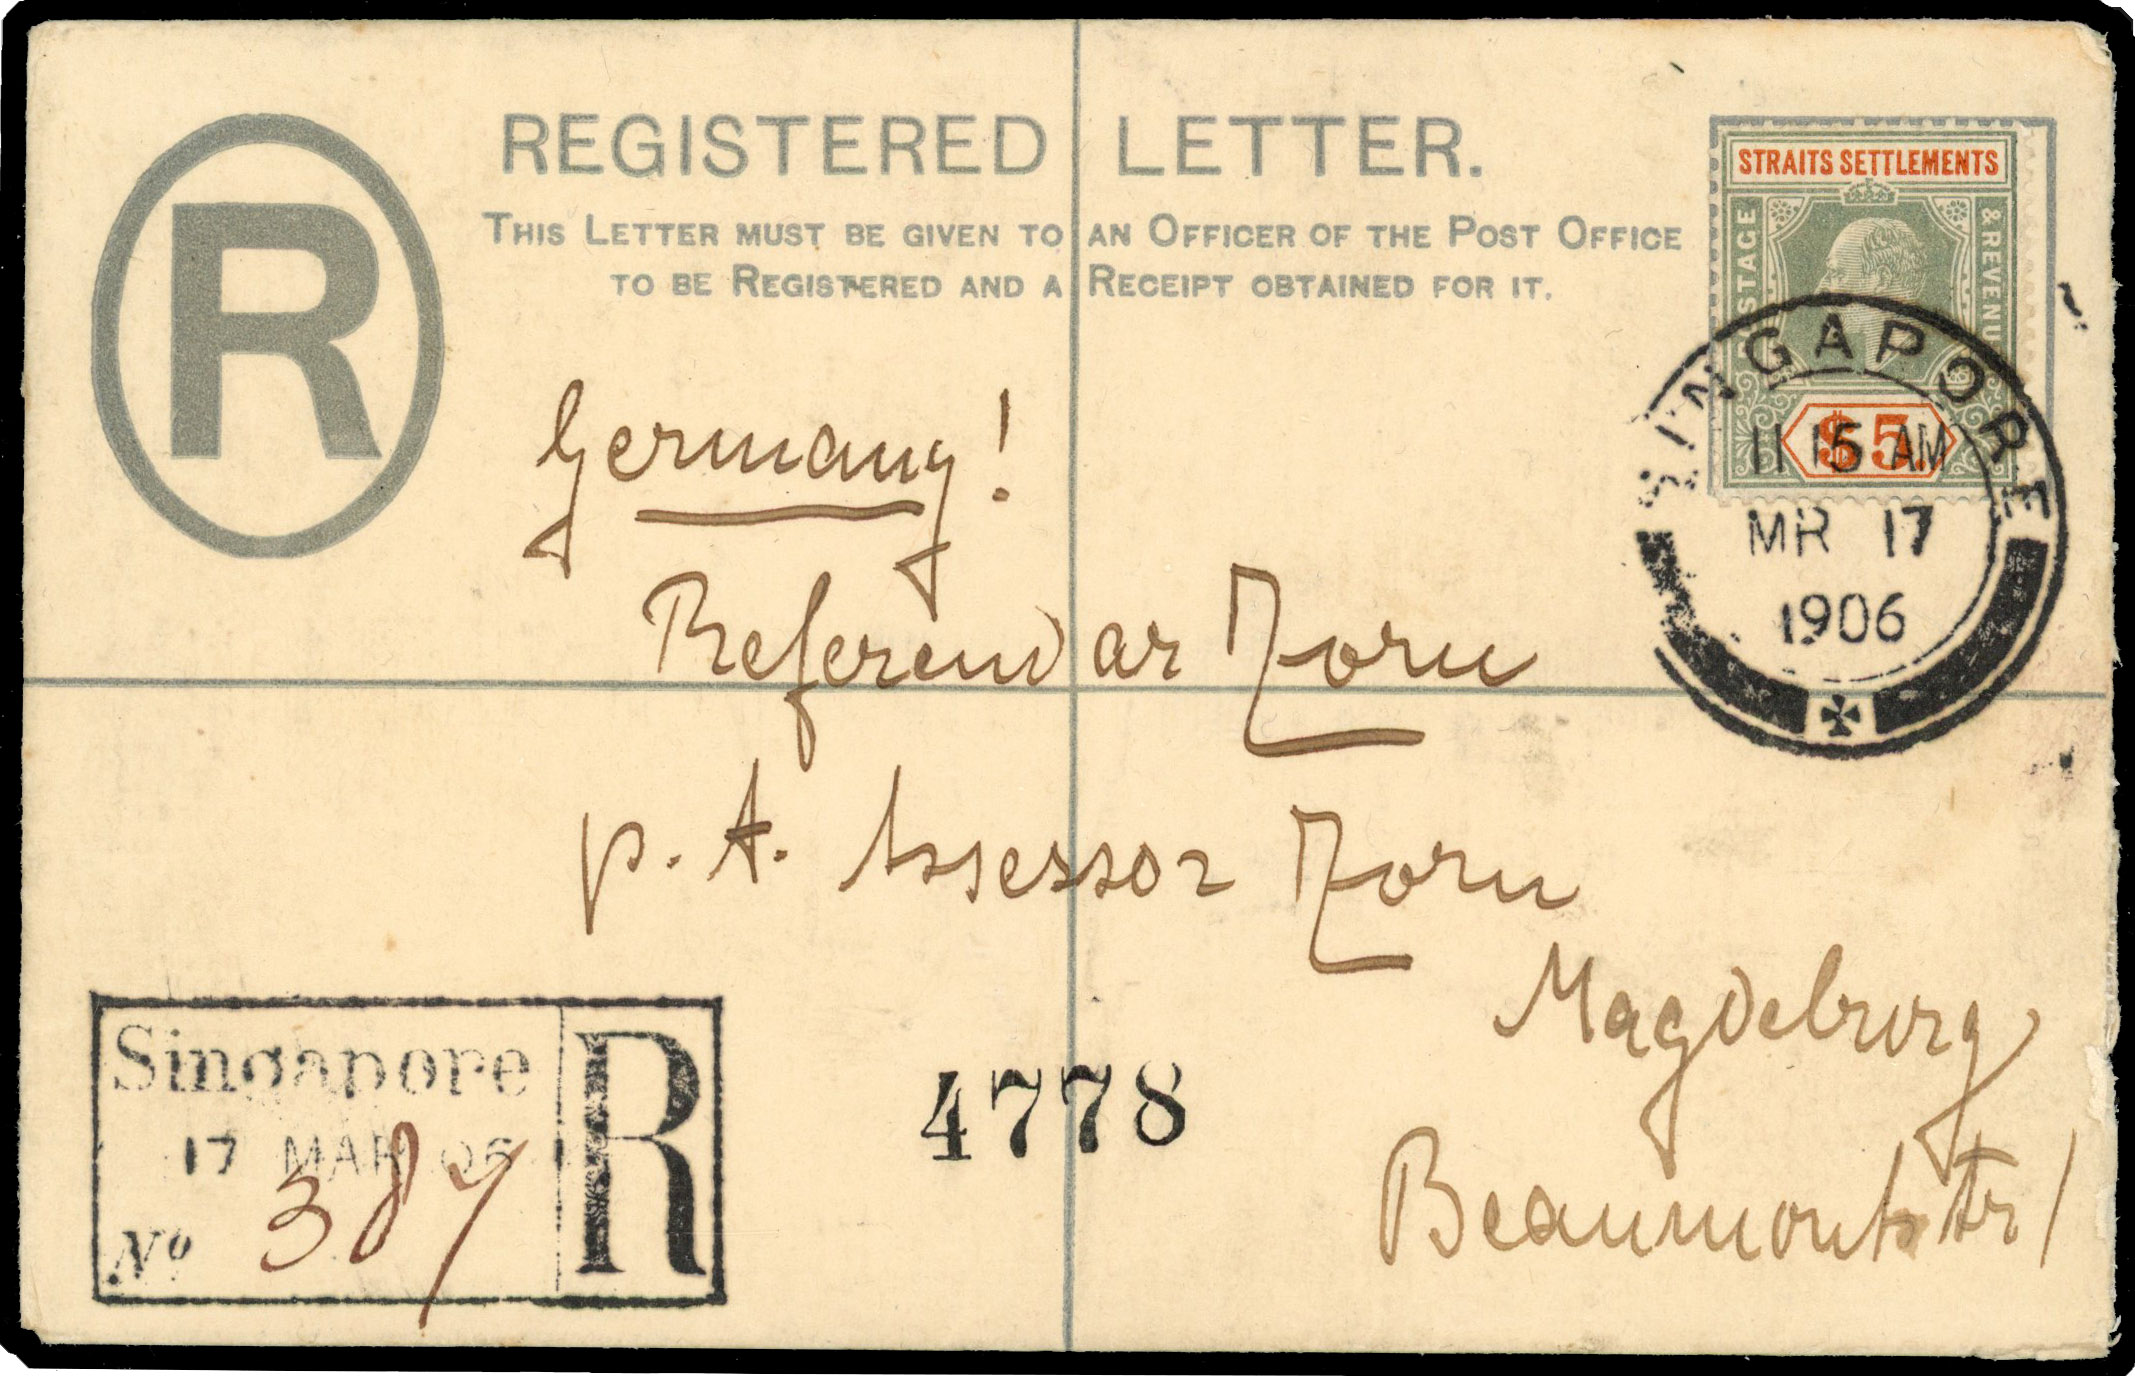 R
REGISTERED LETTER.
THIS LETTER MUST BE GIVEN TO AN OFFICER OF THE POST OFFICE
TO BE REGISTERED AND A RECEIPT OBTAINED FOR IT.
STRAITS SETTLEMENTS
POSTAGE
& REVENUE
$5.
SINGAPORE
11 15 AM
MR 17
1906
Germany!
Referendar Zorn
p. A. Assessor Zorn
Magdeburg
Beaumontstr 1
Singapore
17 MAR 06
No 387
R
4778